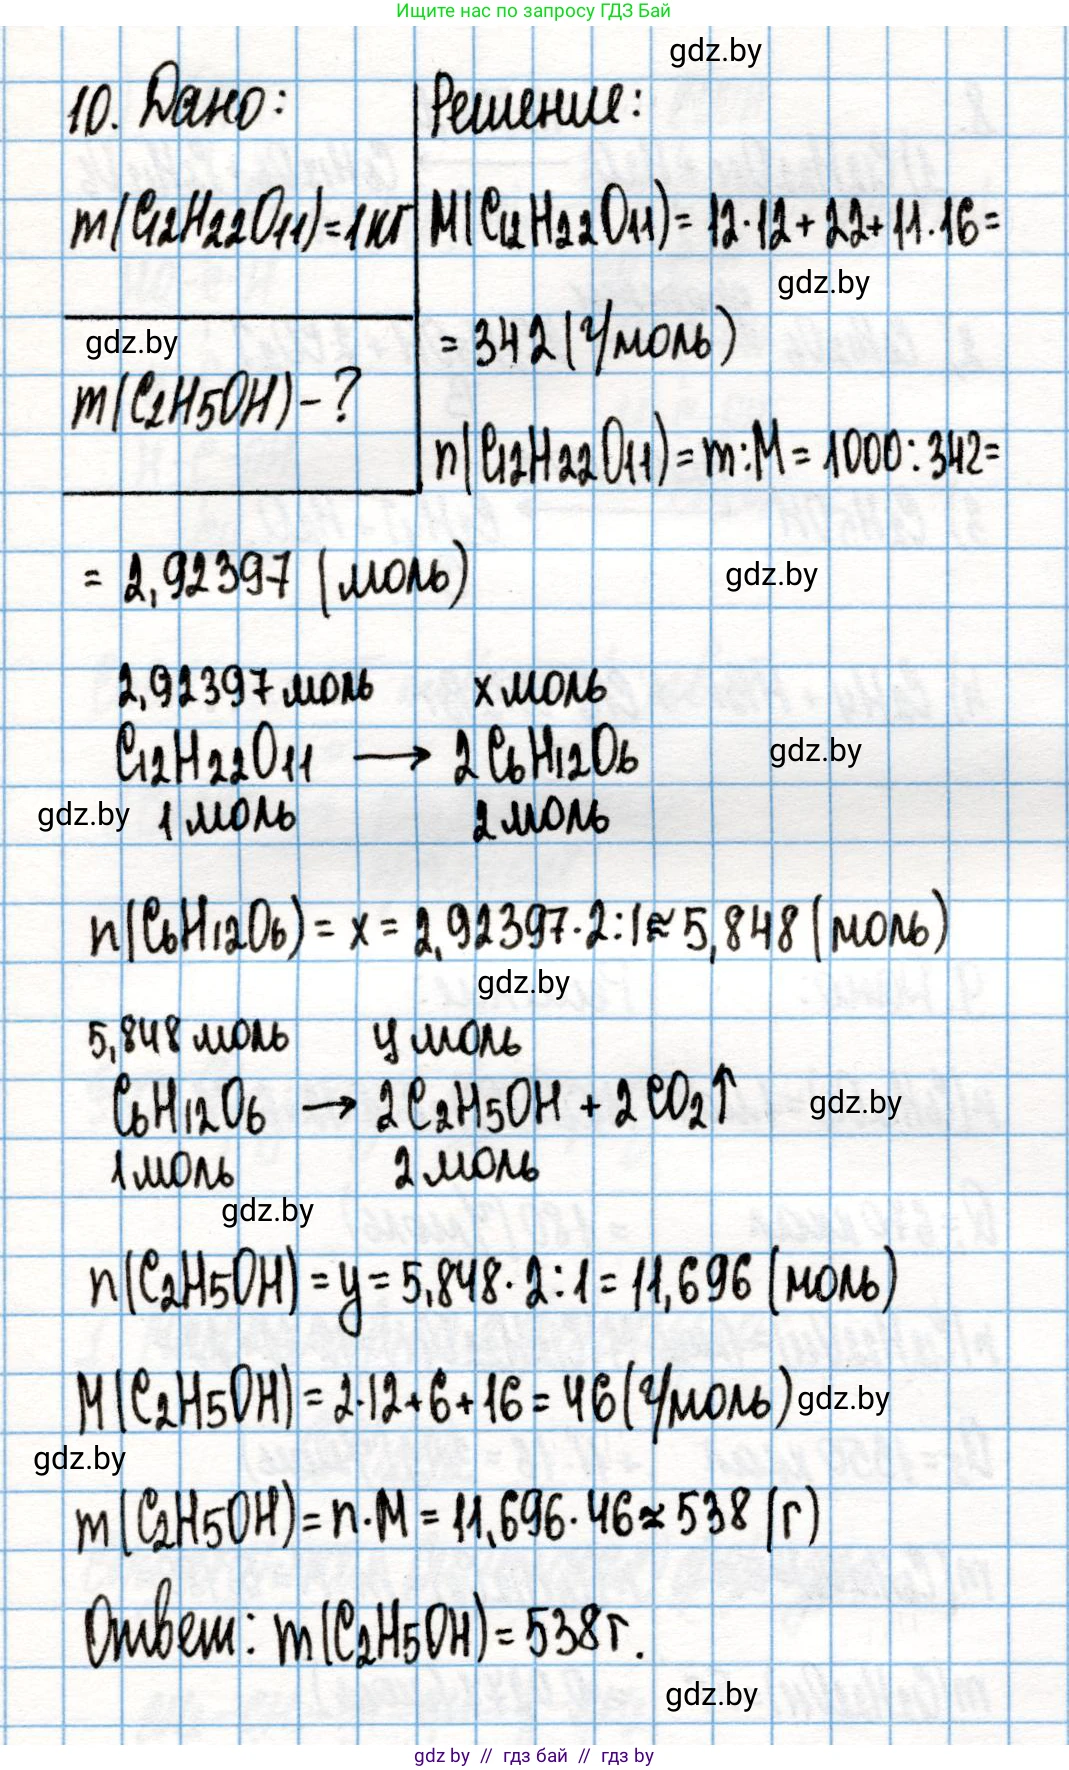 Ищите нас по запросу ГДЗ Бай
gdz.by
10. Дано:
Решение:
m(C12H22O11)=1кг
M(C12H22O11)= 12·12+22+11·16=
gdz.by
=342(г/моль)
gdz.by
m(C2H5OH)-?
n(C12H22O11)=m:M=1000:342=
=2,92397 (моль)
gdz.by
2,92397моль xмоль
C12H22O11 → 2C6H12O6
gdz.by
gdz.by
1моль 2моль
n(C6H12O6)=x=2,92397·2:1≈5,848(моль)
gdz.by
5,848моль yмоль
C6H12O6 → 2C2H5OH + 2CO2↑
gdz.by
1моль 2моль
gdz.by
n(C2H5OH)=y=5,848·2:1=11,696(моль)
M(C2H5OH)=2·12+6+16=46(г/моль)
gdz.by
gdz.by
m(C2H5OH)=n·M=11,696·46≈538(г)
Ответ: m(C2H5OH)=538г.
gdz.by
gdz by // гдз бай // гдз by